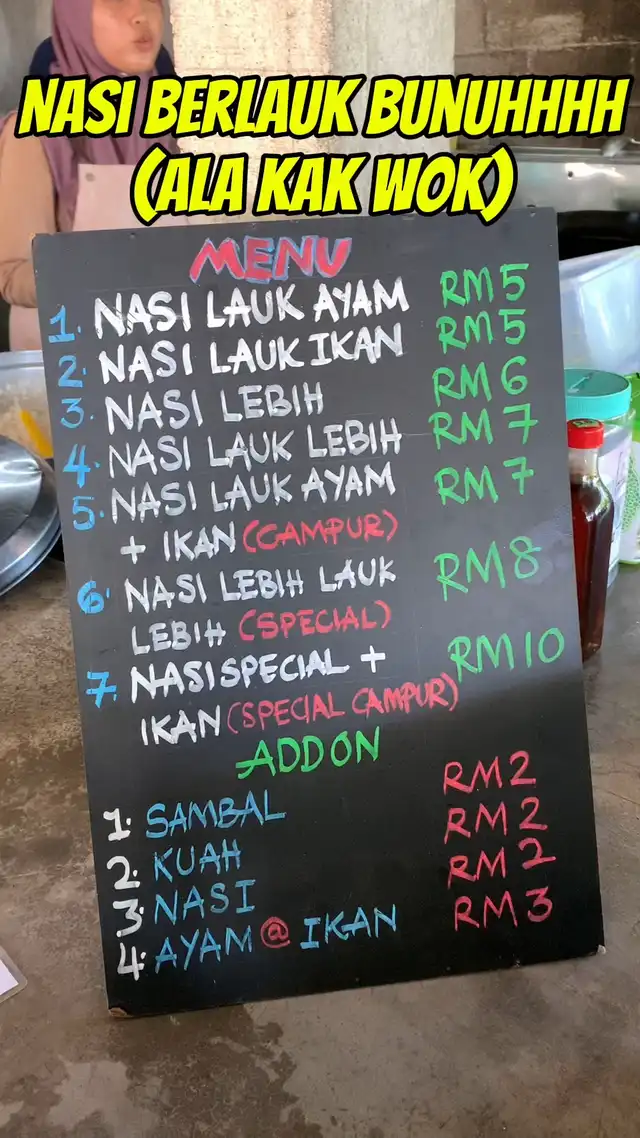 NASI BERLAUK BUNUHHHH
(ALA KAK WOK)
MENU
1. NASI LAUK AYAM RM5
2. NASI LAUK IKAN RM5
3. NASI LEBIH RM6
4. NASI LAUK LEBIH RM7
5. NASI LAUK AYAM RM7
+ IKAN (CAMPUR)
6. NASI LEBIH LAUK RM8
LEBIH (SPECIAL)
7. NASI SPECIAL + RM10
IKAN (SPECIAL CAMPUR)
ADD ON
1. SAMBAL RM2
2. KUAH RM2
3. NASI RM2
4. AYAM @ IKAN RM3